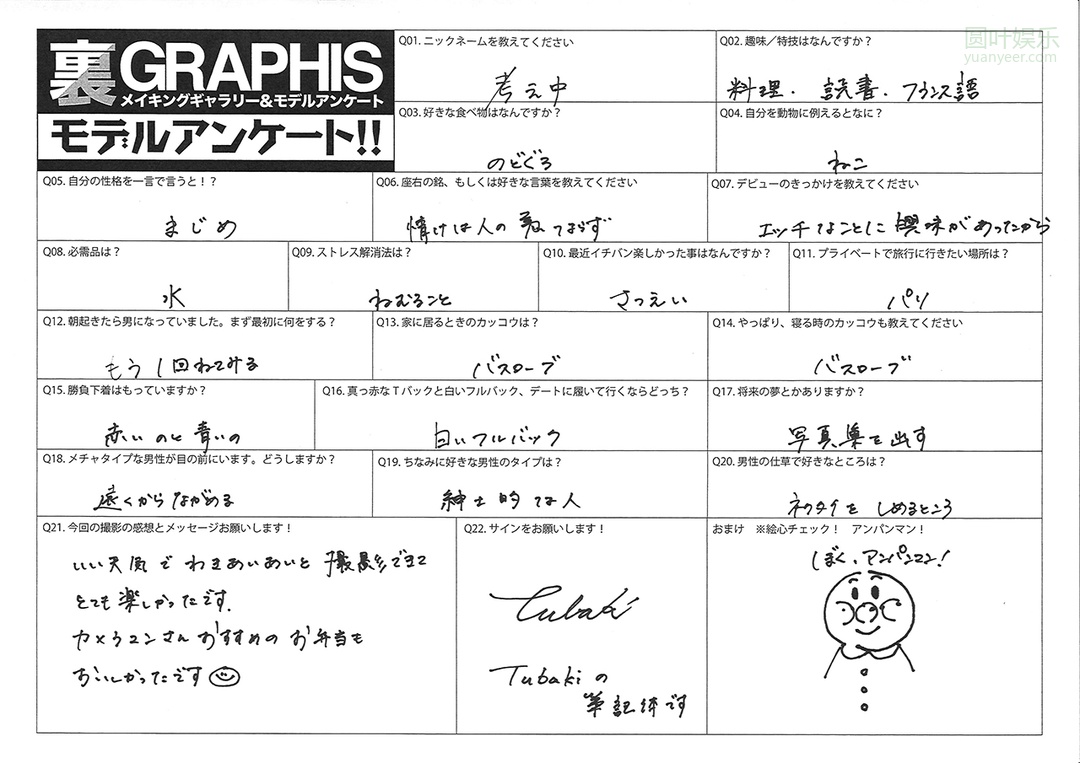 裏GRAPHIS
メイキングギャラリー&モデルアンケート
モデルアンケート!!
圆叶娱乐
yuanyeer.com
Q01. ニックネームを教えてください
考え中
Q02. 趣味／特技はなんですか？
料理. 読書. フランス語
Q03. 好きな食べ物はなんですか？
のどぐろ
Q04. 自分を動物に例えるとなに？
ねこ
Q05. 自分の性格を一言で言うと！？
まじめ
Q06. 座右の銘、もしくは好きな言葉を教えてください
情けは人の為ならず
Q07. デビューのきっかけを教えてください
エッチなことに興味があったから
Q08. 必需品は？
水
Q09. ストレス解消法は？
ねむること
Q10. 最近イチバン楽しかった事はなんですか？
さつえい
Q11. プライベートで旅行に行きたい場所は？
パリ
Q12. 朝起きたら男になっていました。まず最初に何をする？
もう1回ねてみる
Q13. 家に居るときのカッコウは？
バスローブ
Q14. やっぱり、寝る時のカッコウも教えてください
バスローブ
Q15. 勝負下着はもっていますか？
赤いのと青いの
Q16. 真っ赤なTバックと白いフルバック、デートに履いて行くならどっち？
白いフルバック
Q17. 将来の夢とかありますか？
写真集を出す
Q18. メチャタイプな男性が目の前にいます。どうしますか？
遠くからながめる
Q19. ちなみに好きな男性のタイプは？
紳士的な人
Q20. 男性の仕草で好きなところは？
ネクタイを しめるところ
Q21. 今回の撮影の感想とメッセージお願いします！
いい天気で わきあいあいと 撮影できて
とても楽しかったです.
カメラマンさん おすすめの お弁当も
おいしかったです
Q22. サインをお願いします！
Tubaki
Tubaki の
筆記体です
おまけ ※絵心チェック！ アンパンマン！
ぼく、アンパンマン!